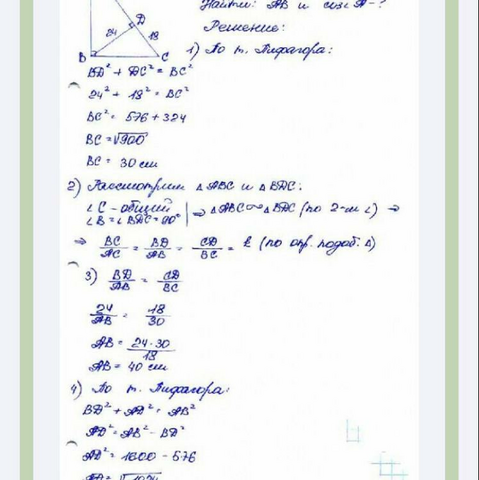 Найти: AB и cos A - ?
Решение:
D
24
18
B
C
1) По т. Пифагора:
BD² + DC² = BC²
24² + 18² = BC²
BC² = 576 + 324
BC = √900
BC = 30 см
2) Рассмотрим △ABC и △BDC:
∠C - общий
∠B = ∠BDC = 90° | ⇒ △ABC ∼ △BDC (по 2-м ∠) ⇒
⇒ BC/AC = BD/AB = CD/BC = k (по опр. подоб. △)
3) BD/AB = CD/BC
24/AB = 18/30
AB = 24·30/18
AB = 40 см
4) По т. Пифагора:
BD² + AD² = AB²
AD² = AB² - BD²
AD² = 1600 - 576
AD = √1024